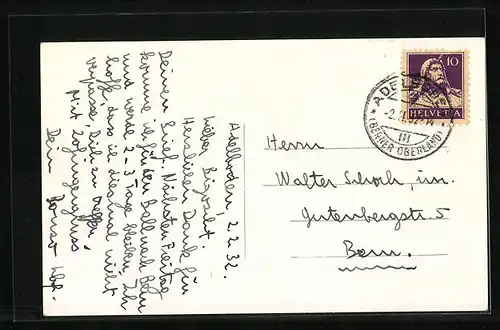 Adelboden, 2.2.32.
Lieber Bigoscht!
Herzlichen Dank für
Deinen Brief. Nächsten Freitag
komme ich für den Ball nach Bern
und werde 2-3 Tage bleiben. Ich
hoffe, dass ich diesmal nicht
verpasse, Dich zu treffen.
Mit Zofingergruss
Dein
10
HELVETIA
ADELBODEN
(BERNER OBERLAND)
III
Herrn
Walter Schoch, jun.
Gutenbergstr. 5
Bern.